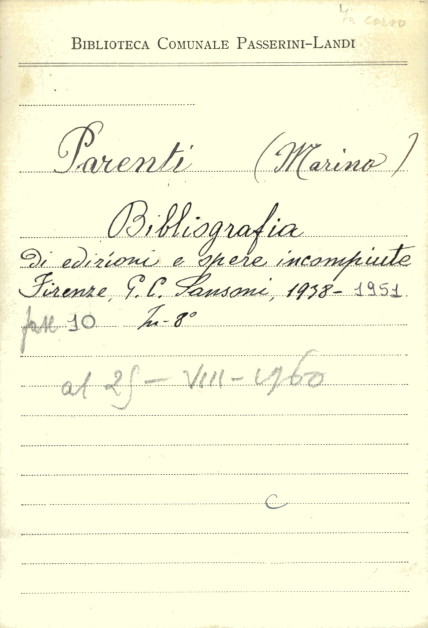 in corso
BIBLIOTECA COMUNALE PASSERINI-LANDI
Parenti (Marino)
Bibliografia
di edizioni e opere incompiute
Firenze, G. C. Sansoni, 1938-1951
fasc 10 In-8°
al 25-VIII-1960
C